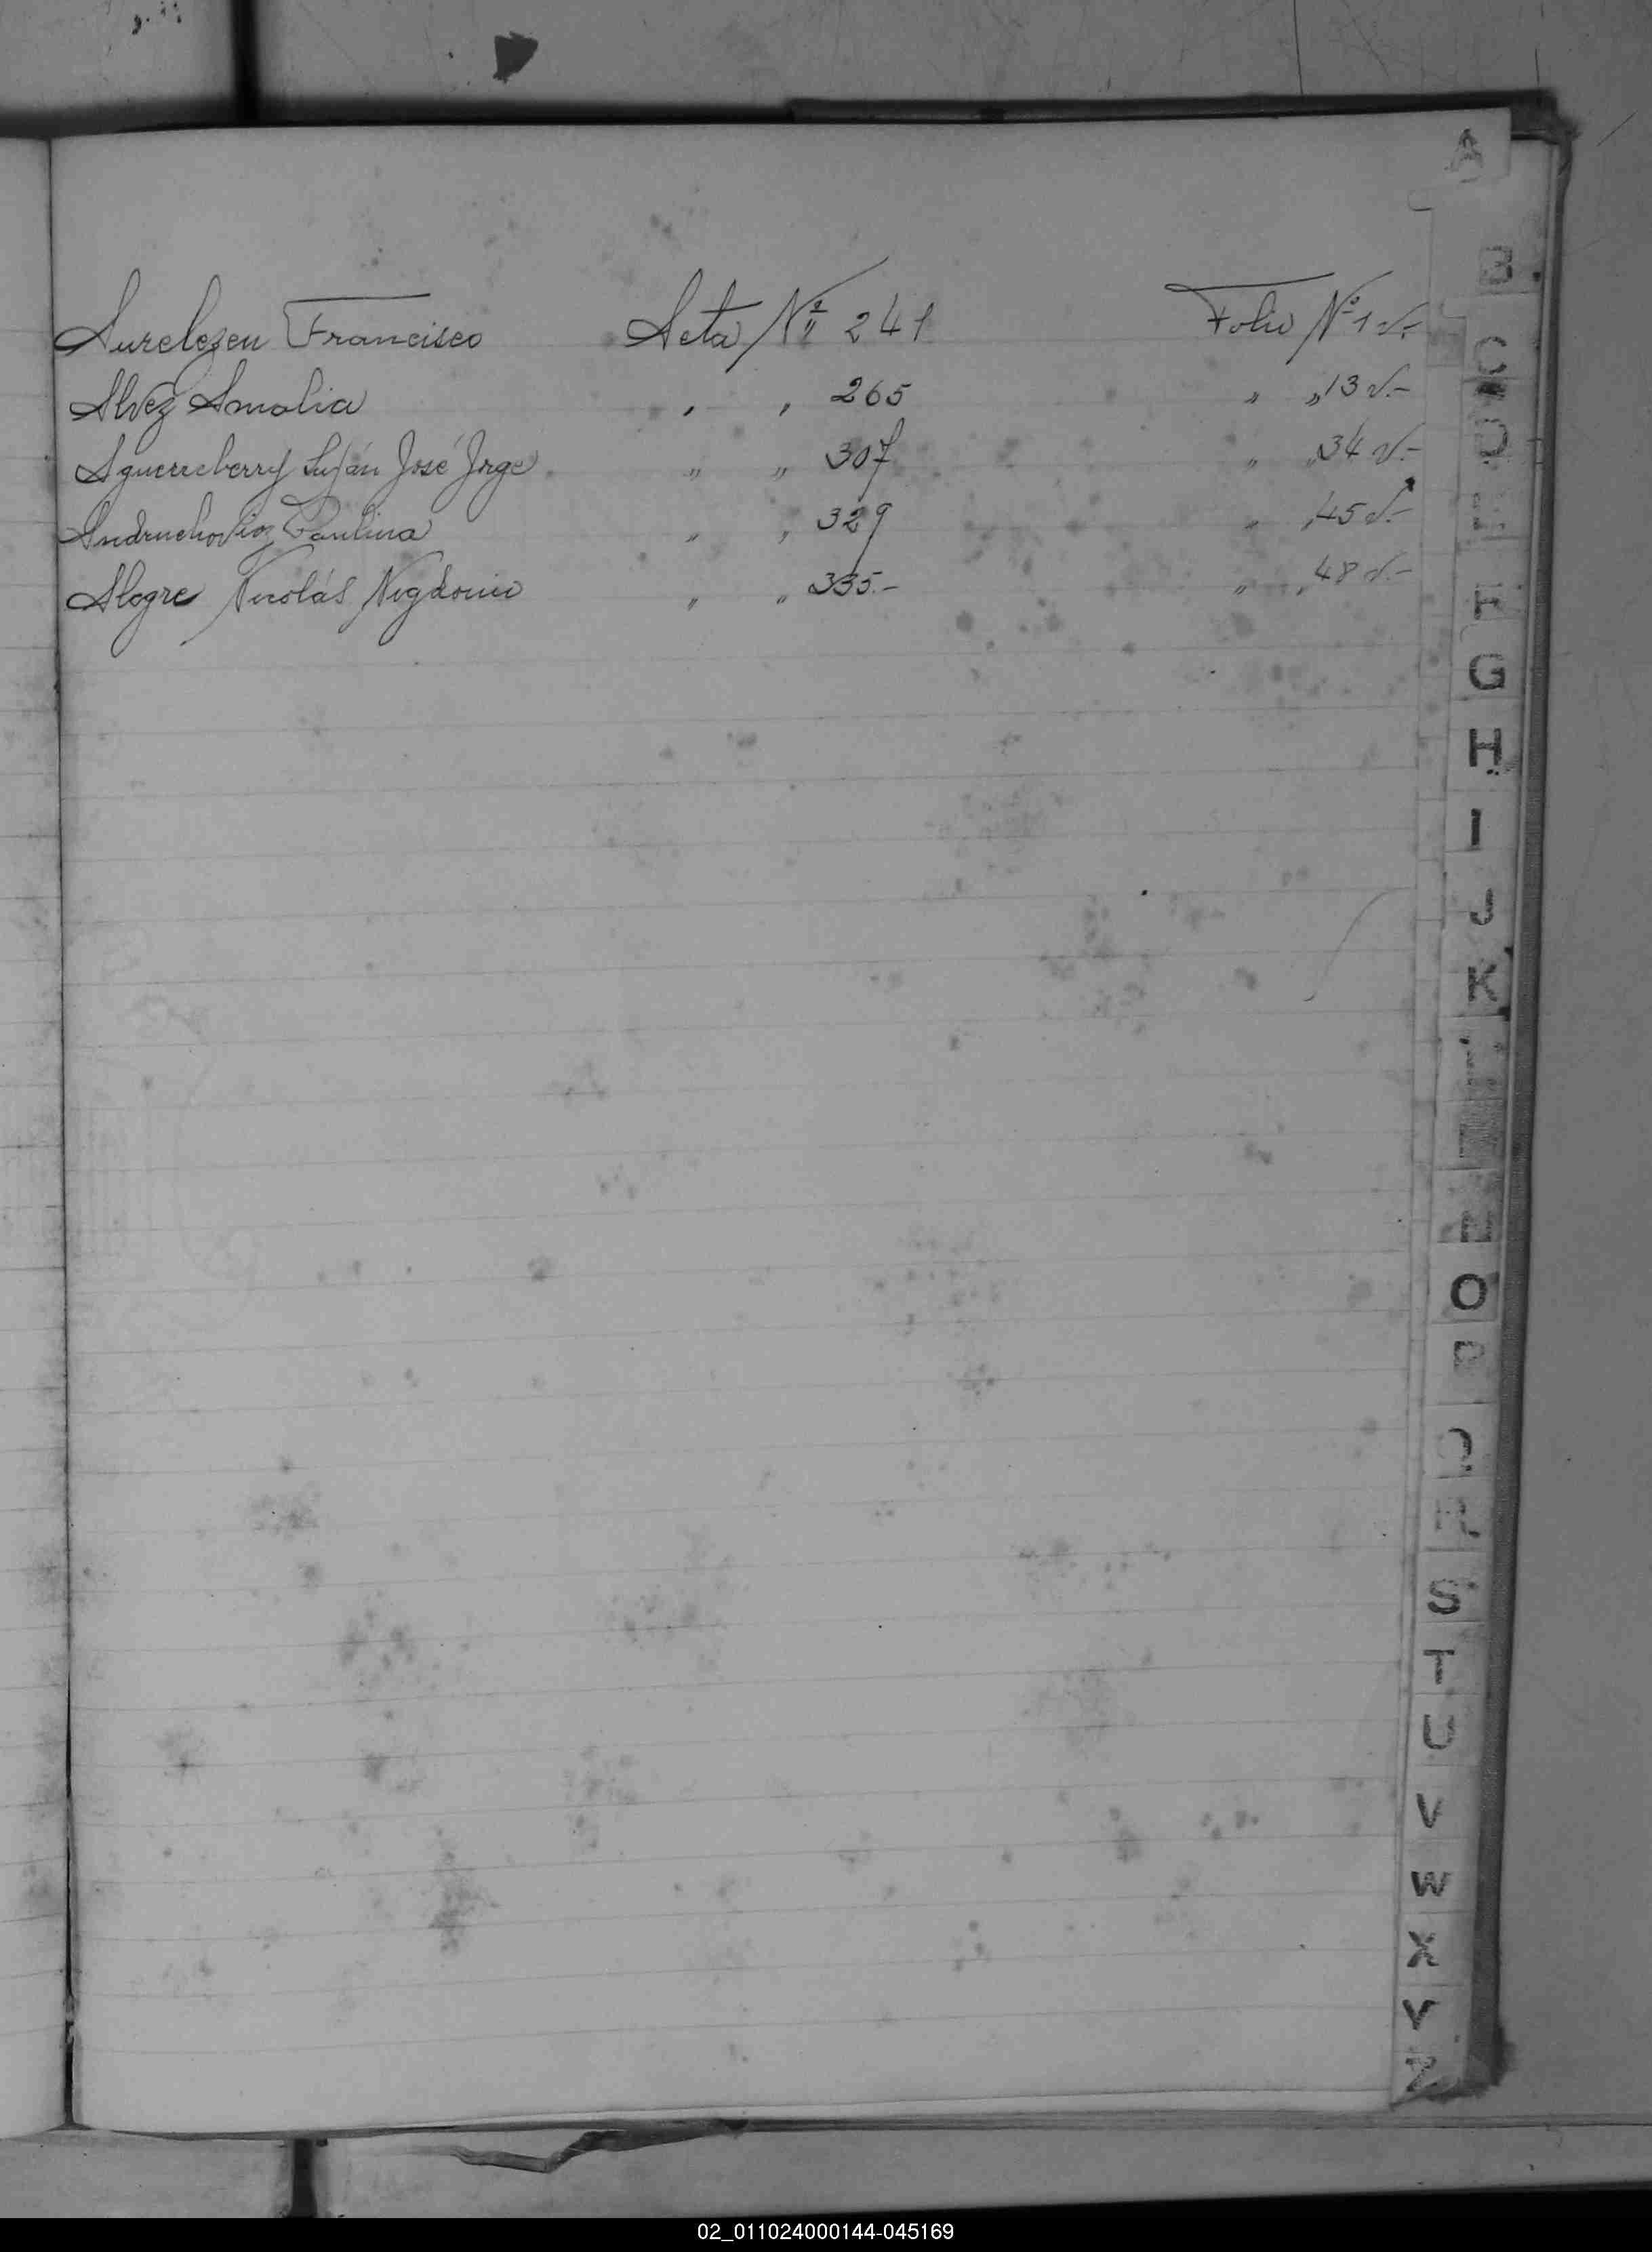 Aurelezeu Francisco Acta Nº 241 Folio Nº 1 v.-
Alvez Amalia , , 265 " " 13 v.-
Aguerreberry Luján José Jorge " " 307 " " 34 v.-
Andruchovicz Paulina " , 329 " , 45 v.-
Alegre Nicolás " " 335.- " , 48 v.-
A
B
C
D
F
G
H
I
J
K
O
P
Q
R
S
T
U
V
W
X
Y
Z
02_011024000144-045169